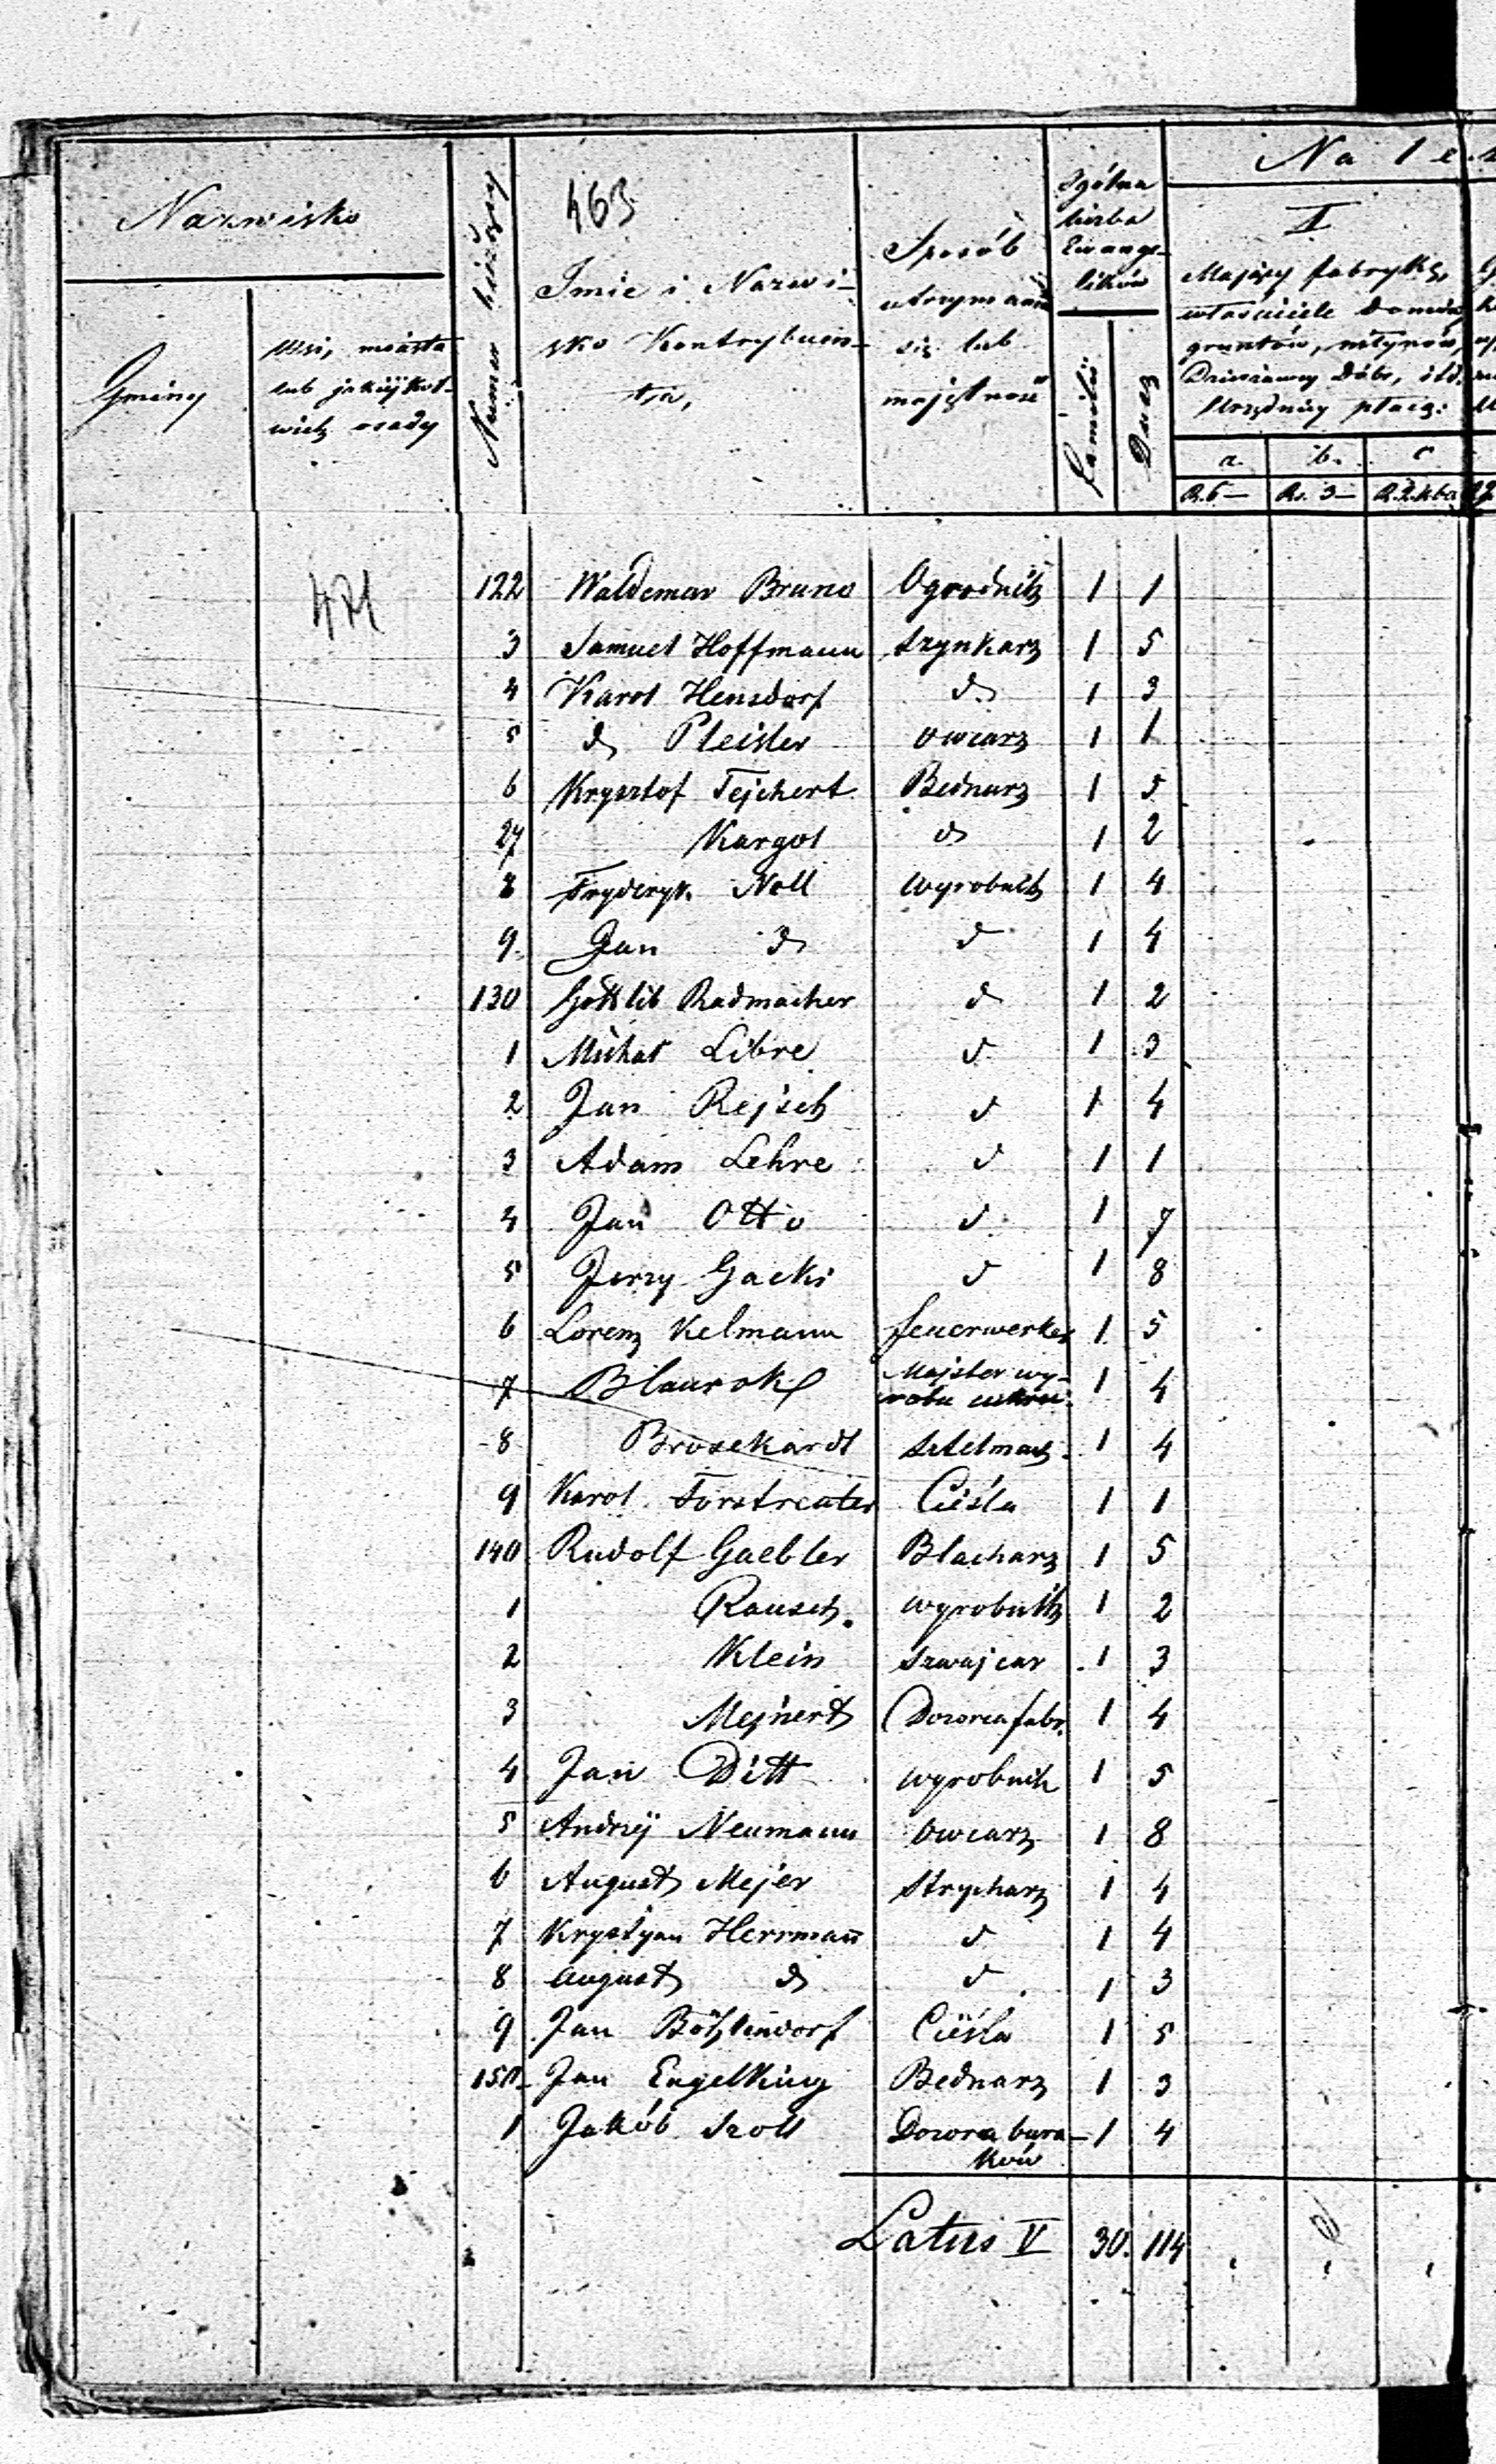 Nazwisko
Gminy
Wsi, miasta
lub jakiejkol-
wiek osady
Numer bieżący
463
Imie i Nazwi-
sko Kontrybuen-
ta,
Sposób
utrzymania
się lub
majętność
Ogólna
liczba
Ewange-
lików
Familii
Dusz
Na l e
I
Mający fabrykę,
właściciele domów,
gruntów, młynów,
Dzierżawcy Dóbr, itd.
Urzędnicy płacą:
a. b. c
R. 6 — Rs. 3 —
471
122 Waldemar Bruno Ogrodnik 1 1
3 Samuel Hoffmann szynkarz 1 5
4 Karol Hensdorf d 1 3
5 d Pleister owczarz 1 1
6 Krysztof Tejchert Bednarz 1 5
27 Kargol d 1 2
8 Fryderyk Noll wyrobnik 1 4
9 Jan d d 1 4
130 Gottlib Radmacher d 1 2
1 Michał Libre d 1 3
2 Jan Rejsch d 1 4
3 Adam Lehre d 1 1
4 Jan Otto d 1 7
5 Jerzy Gacki d 1 8
6 Lorenz Kelmann feuerwerker 1 5
7 Blaurok Majster wy-
robu cukru 1 4
8 Brosekardt sztelmach 1 4
9 Karol Forstreuter Cieśla 1 1
140 Rudolf Gaebler Blacharz 1 5
1 Rausch. wyrobnik 1 2
2 Klein szwajcar 1 3
3 Mejnert Dozorca fabr. 1 4
4 Jan Ditt wyrobnik 1 5
5 Andrzej Neumann owczarz 1 8
6 August Mejer strycharz 1 4
7 Krystyan Herrmañ d 1 4
8 August d d 1 3
9 Jan Böhlendorf Cieśla 1 5
150 Jan Engelking Bednarz 1 3
1 Jakób Szoll Dozorca bura-
ków 1 4
Latus V 30. 114